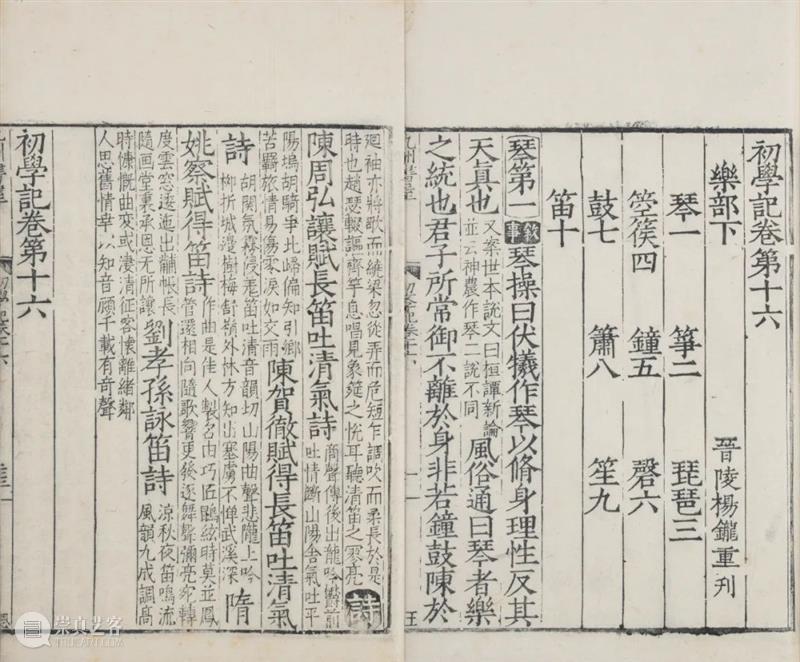 初學記卷第十六
樂部下 晉陵楊鑨重刊
琴一 箏二 琵琶三
箜篌四 鐘五 磬六
鼓七 簫八 笙九
笛十
琴第一 敘事 琴操曰伏犧作琴以脩身理性反其
天真也 又案世本說文曰桓譚新論並云神農作琴二說不同 風俗通曰琴者樂
之統也君子所常御不離於身非若鐘鼓陳於
廻袖亦將歌而繞梁忽從弄而危短乍調吹而柔長於是
時也趙瑟輟謳齊竽息唱見象筵之恱耳聽清笛之寥亮 詩
陳周弘讓賦長笛吐清氣詩 商聲傳後出龍吟鬱前吐情斷山陽舍氣吐平
陽塢胡騎爭北歸偏知引鄉
苦羈旅情易傷零淚如交雨 陳賀徹賦得長笛吐清氣
詩 胡關氛霧侵羌笛吐清音韻切山陽曲聲悲隴上吟柳折城邊樹梅舒嶺外林方知出塞虜不憚武溪深 隋
姚察賦得笛詩 作曲是佳人製名由巧匠鵾絃時莫並鳳管還相向隨歌響更發逐舞聲彌亮宛轉
度雲窓逶迤出黼帳長
隨画堂裏承恩无所讓 劉孝孫詠笛詩 涼秋夜笛鳴流風韻九成調高
時慷慨曲変或凄清征客懷離緒鄰
人思舊情幸以知音顧千載有奇聲
初學記卷第十六
崇真艺客